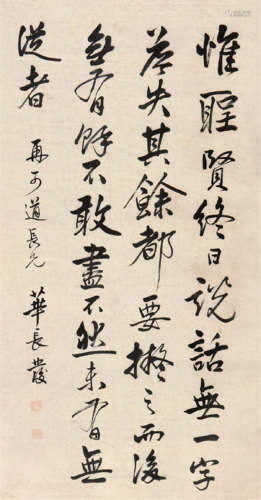 惟聖賢終日說話無一字
差失其餘都要擬之而後
言有餘不敢盡不然未有無
過者
再可道長兄 華長發